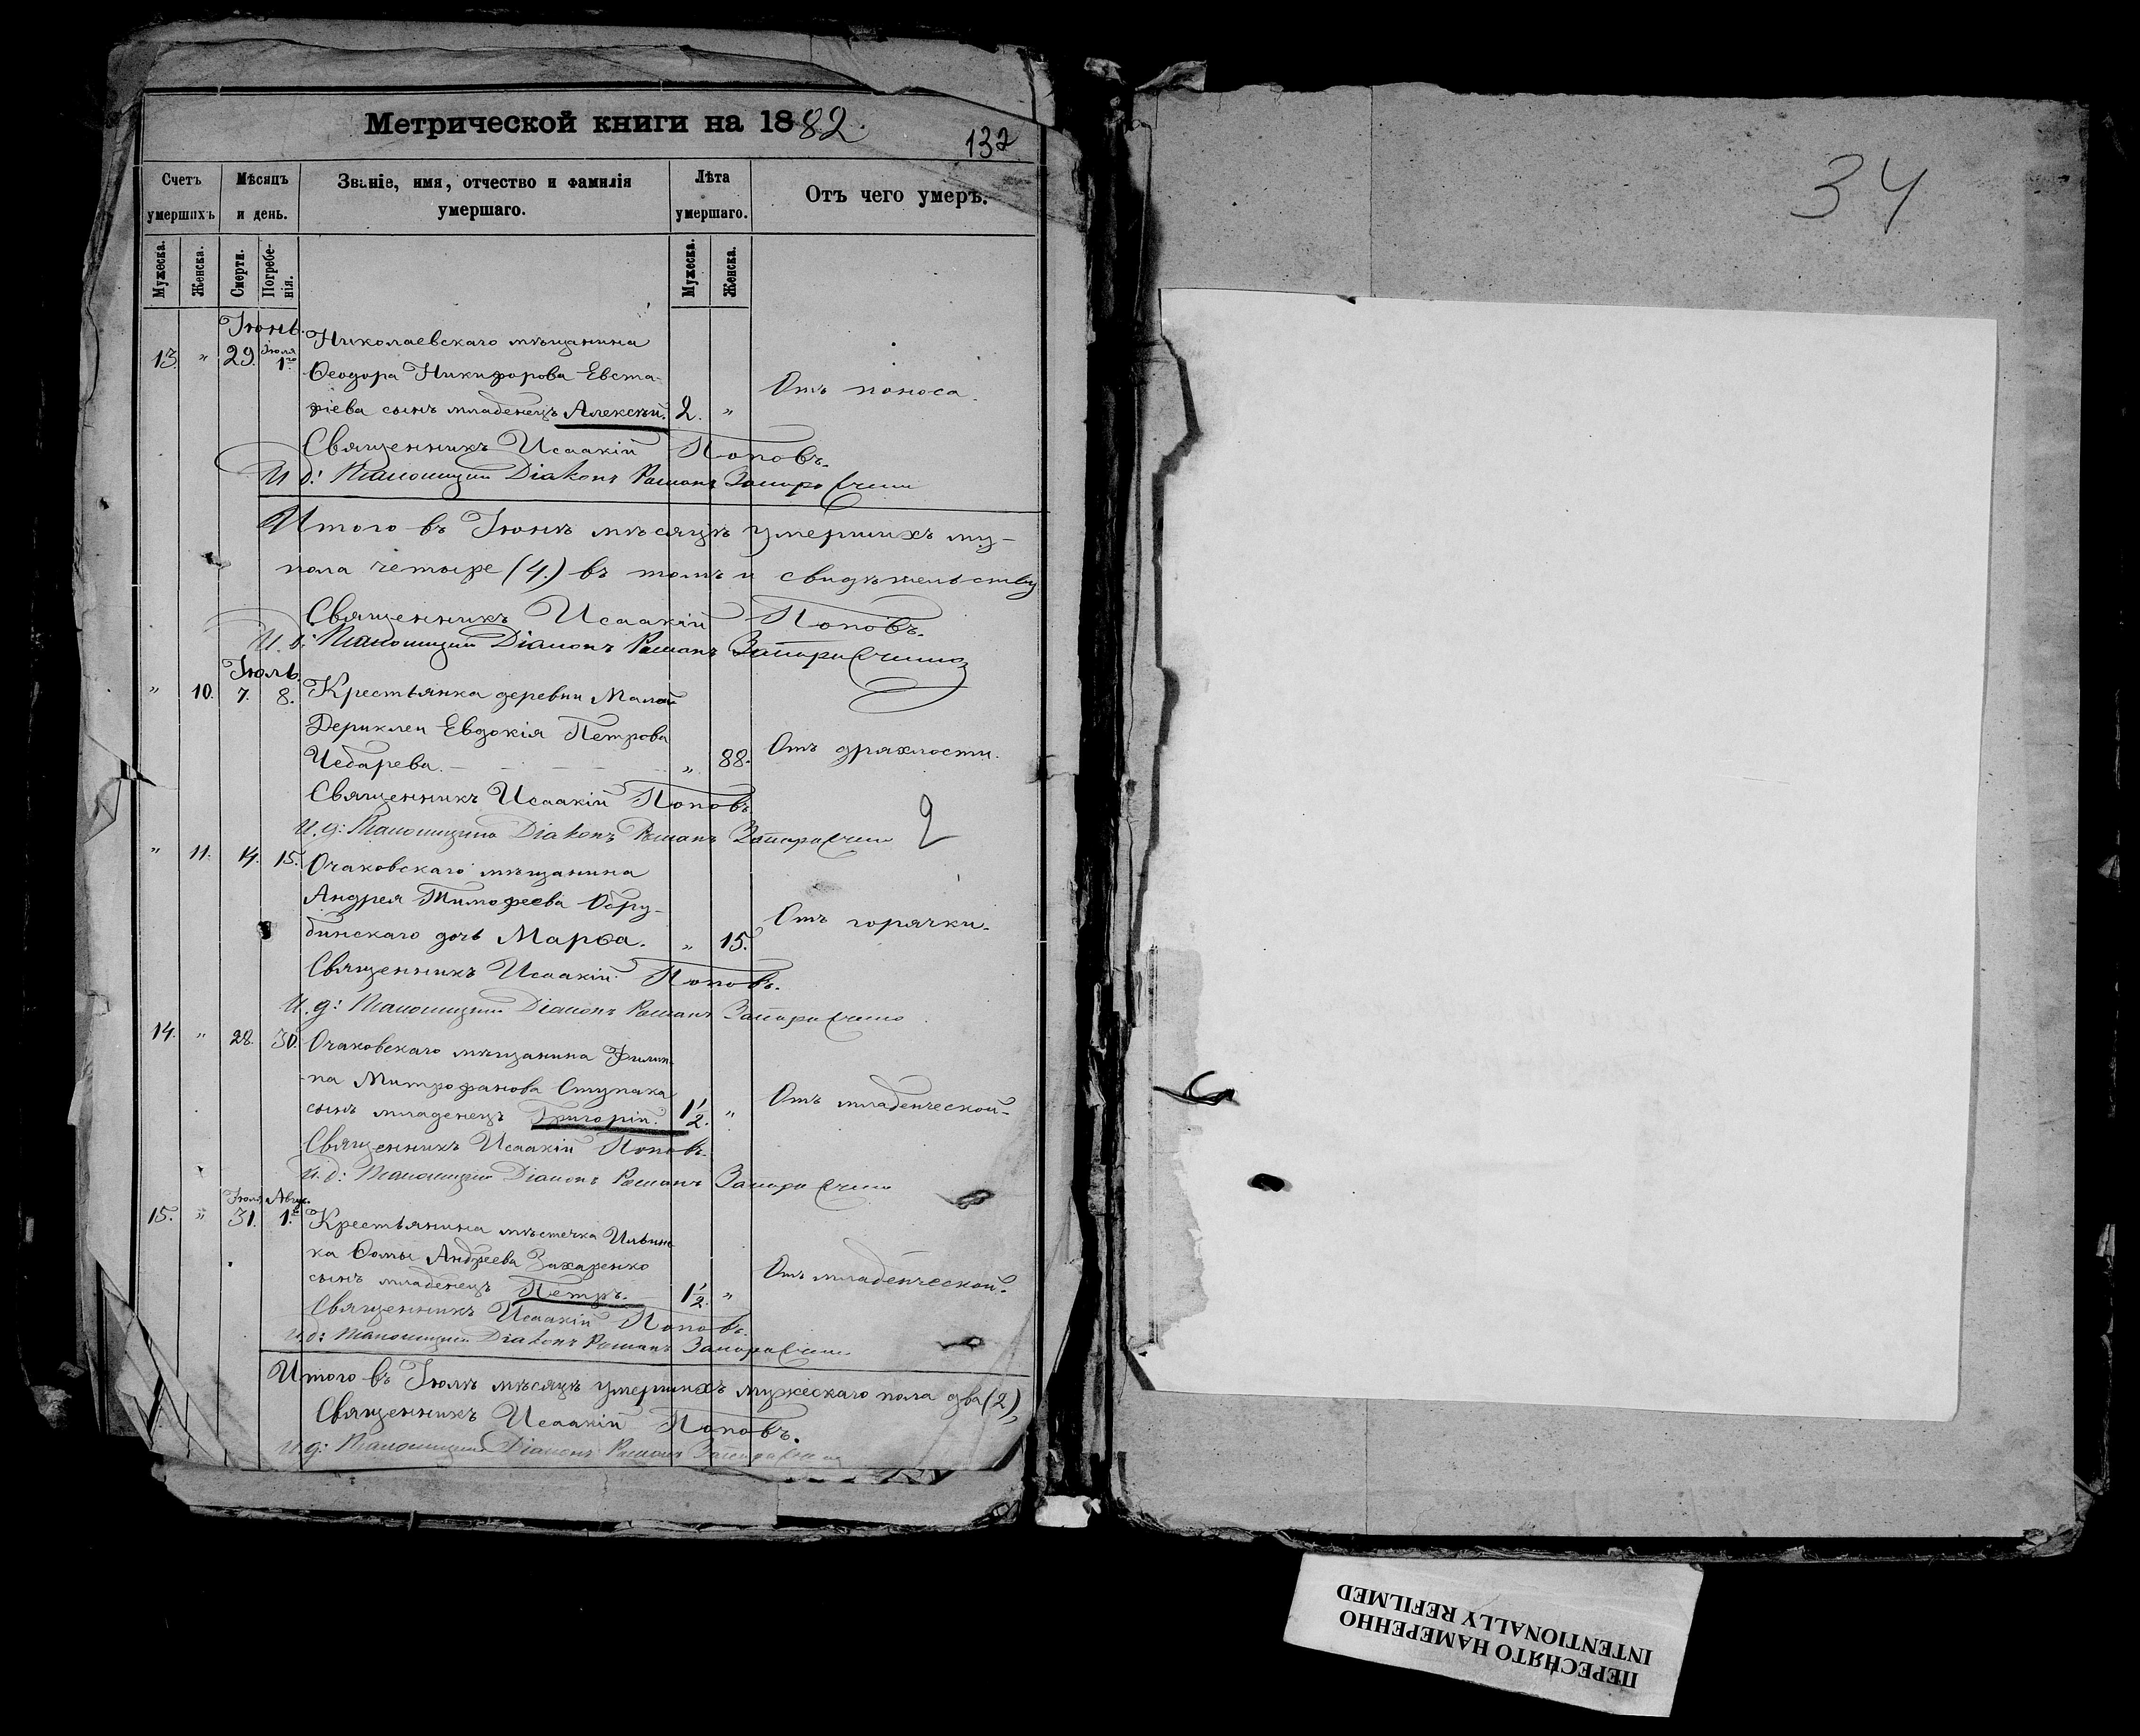 Метрической книги на 1882.
132
Счетъ умершихъ
Мѣсяцъ и день.
Званіе, имя, отчество и фамилія умершаго.
Лѣта умершаго.
Отъ чего умеръ.
Мужеска.
Женска.
Смерти.
Погребенія.
Мужеска.
Женска.
Іюнь.
Іюля
13. " 29. 1го Николаевскаго мѣщанина
Ѳеодора Никифорова Евста-
фіева сынъ младенецъ Алексѣй. 2. " Отъ поноса.
Священникъ Исаакій Поповъ.
И. д: Псаломщика Діаконъ Романъ
Итого въ Іюнѣ мѣсяцѣ умершихъ му-
пола четыре (4.) въ томъ и свидѣтельству
Священникъ Исаакій Поповъ.
И. д: Псаломщика Діаконъ Романъ
Іюль.
" 10. 7. 8. Крестьянка деревни Малой
Дериклеи Евдокія Петрова
Чебарева. " 88. Отъ дряхлости.
Священникъ Исаакій Поповъ
И. д: Псаломщика Діаконъ Романъ
2
" 11. 14. 15. Очаковскаго мѣщанина
Андрея Тимофеева
бинскаго дочь Марѳа. " 15. Отъ горячки.
Священникъ Исаакій Поповъ.
И. д: Псаломщика Діаконъ Романъ
14. " 28. 30. Очаковскаго мѣщанина Филип-
па Митрофанова Ступака
сынъ младенецъ Григорій. 1 1/2. " Отъ младенческой.
Священникъ Исаакій Поповъ.
И. д: Псаломщика Діаконъ Романъ
Іюля Авгус.
15. " 31. 1го Крестьянина мѣстечка Ильин-
ка Ѳомы Андреева Захаренко
сынъ младенецъ Петръ. 1 1/2. " Отъ младенческой.
Священникъ Исаакій Поповъ.
И. д: Псаломщика Діаконъ Романъ
Итого въ Іюлѣ мѣсяцѣ умершихъ мужескаго пола два (2),
Священникъ Исаакій Поповъ.
И. д: Псаломщика Діаконъ Романъ
34
ПЕРЕСНЯТО НАМЕРЕННО
INTENTIONALLY REFILMED